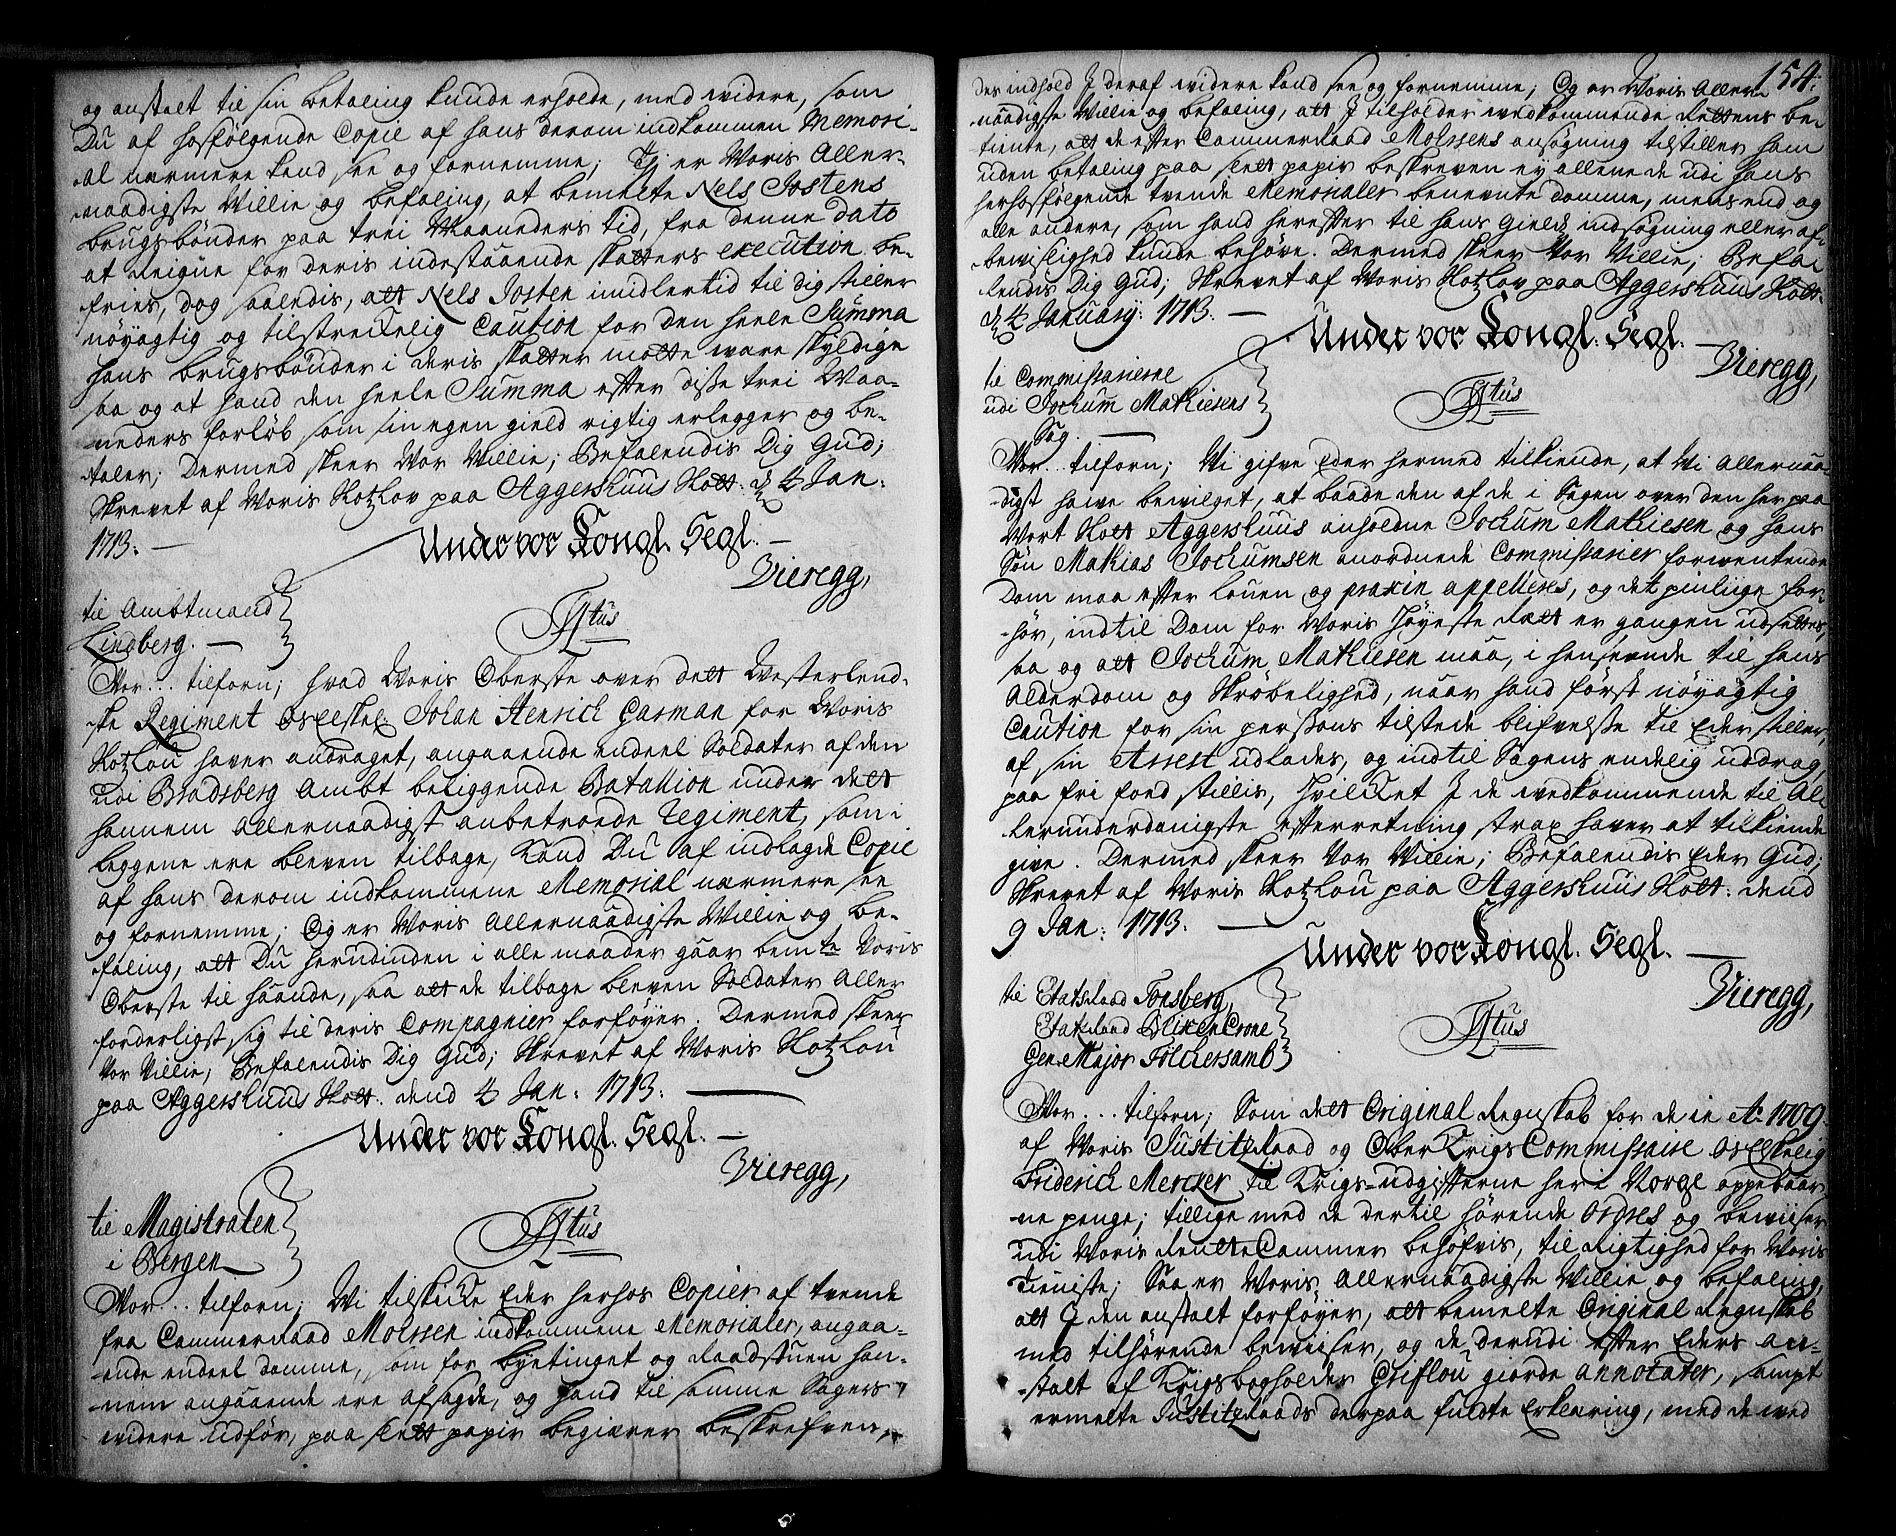 og anstalt til sin betaling kunde erholde, med widere, som
Du af hosfølgende Copie af hans derom indkommen Memori-
al nærmere kand see og fornemme; Tj er Woris Aller-
naadigste Willie og befaling, at bemelte Nels Jostens
brugsbønder paa trei Maaneders tid, fra denne dato
at reigne for deris indestaaende skatters execution be-
fries, dog saaledis, att Nels Josten imidlertid til dig stiller
nøyagtig og tilstreckelig Caution for den heele Summa
hans brugsbønder i deris skatter motte ware skyldige
saa og at hand den heele Summa efter disse trei Maa-
neders forløb som sin egen gield rigtig erlegger og be-
taler; Dermed skeer Wor Willie; Befalendis Dig Gud;
Skrevet af Woris Sloszlov paa Aggershuus Slott d. 4 Jan:
1713.
Under vor Kongl. Segl.
Vieregg,
til Ambtmand
Lindberg.
Fr: 4tus
Wor... tilforn; hvad Woris Oberste over dett Westerlend-
ske Regiment os elskel: Johan Henrich Garman for Woris
Sloszlou haver andraget, angaaende endeel Soldater af den
udi Bradsberg Ambt beliggende Batallion under dett
hannem allernaadigst anbetroede Regiment, som i
leggene ere bleven tilbage, kand Du af indlagde Copie
af hans derom indkommene Memorial nærmere see
og fornemme; Og er Woris allernaadigste Willie og be-
faling, att Du herudinden i alle maader gaar bemte Woris
Oberste til haande, saa att de tilbage bleven Soldater aller
forderligst sig til deris Compagnier forføyer. Dermed skeer
Vor Villie; Befalendis Dig Gud; Skrevet af Woris Sloszlou
paa Aggershuus Slott. dend 4 Jan: 1713.
Under vor Kongl. Segl.
Vieregg,
til Magistraten
i Bergen
Fr: 4tus
Wor... tilforn; Wi tilskicke Eder herhos Copier af tvende
fra Cammerraad Moessen indkommene Memorialer, angaa-
ende endeel domme, som for byetinget og Raadstuen han-
nem angaaende ere afsagde, og hand til samme Sagers
widere udfør, paa slett papir begierer beskrefven,
154.
des indhold J deraf widere kand see og fornemme; Og er Woris Aller-
naadigste Willie og befaling, att J tilholder wedkommende Rettens be-
tiente, att de efter Cammerraad Moessens ansøgning tilstiller ham
uden betaling paa slett papir beskreven ey allene de udi hans
herhosfølgende tvende Memorialer benevnte domme, mens end og
alle andere, som hand herefter til hans Gields indsøgning eller af-
bewislighed kunde behøve. Dermed skeer Vor Villie; Befa-
lendis Dig Gud; Skrevet af Woris Sloszlov paa Aggershuus Slott.
d. 4 January: 1713.
Under vor Kongl. Segl.
Vieregg,
til Commissarierne
udi Jochum Mathiesens
Sag.
Fr: 4tus
Wor... tilforn; Wi gifve Eder hermed tilkiende, at Wi Allernaa-
digst haive bewilget, at baade den af de i Sagen over den her paa
Wort Slott Aggershuus anholdne Jochum Mathiesen og hans
Søn Mathias Jochumsen anordnede Commissarier forwentende
Dom maa efter Louen og praxin appelleres, og det pinlige for-
hør, indtil Dom for Woris Høyeste Rett er gangen udsettes,
saa og att Jochum Mathiesen maa, i henseende til hans
Alderdom og Skrøbelighed, naar hand først nøyagtig
Caution for sin persons tilstede blifvelsse til Eder stiller,
af sin Arrest udlades, og indtil Sagens endelig uddrag,
paa fri foed stillis, hvilcket J de wedkommende til al-
lerunderdanigste efterretning strax haver at tilkiende
give. Dermed skeer Vor Villie; Befalendis Eder Gud;
Skrevet af Woris Sloszlou paa Aggershuus Slott. dend
9 Jan: 1713.
Under vor Kongl. Segl.
Vieregg,
til Etatsraad Tonsberg,
Etatsraad Blixencrone
Gen: Major Tolchersamb
Fr: 4tus
Wor... tilforn; Som dett Original Regnskab for de in Ao 1709
af Woris Justitzraad og Ober Krigs Commissaire os elskelig
Friderich Mercker til Krigs-udgifterne her i Norge oppebaar-
ne penge; tillige med de dertil hørende Ordres og bewiiser
udi Woris Rentte Cammer behøfvis, til Rigtighed for Woris
Tieniste; Saa er Woris Allernaadigste Willie og befaling,
att J den anstalt forføyer, att bemelte Original Regnskab
med tilhørende bewiiser, og de derudi efter Eders an-
stalt af Krigsbogholder Griflou giorde annotater, sampt
ermelte Justitzraads derpaa fuldte Erklæring, med de wed